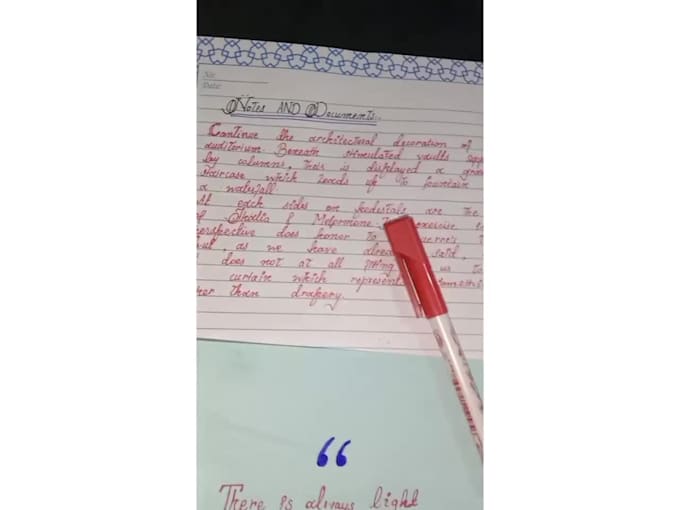 No.
Date:
Notes AND Documents.
Continue the architectural decoration of
auditorium. Beneath stimulated vaults
by columns, their is displayed a
staircase which leads up to fountain
a waterfall
At each sides on pedestals are the
of Thalia & Melpomene. exercise
perspective does honor to
as we have said,
does not at all us to
curtain which represent
than drapery.
“
There is always light